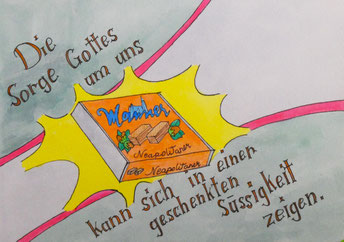 Die
Sorge Gottes
um uns
Manner
Neapolitaner
Neapolitaner
kann sich in einer
geschenkten
Süssigkeit
zeigen.